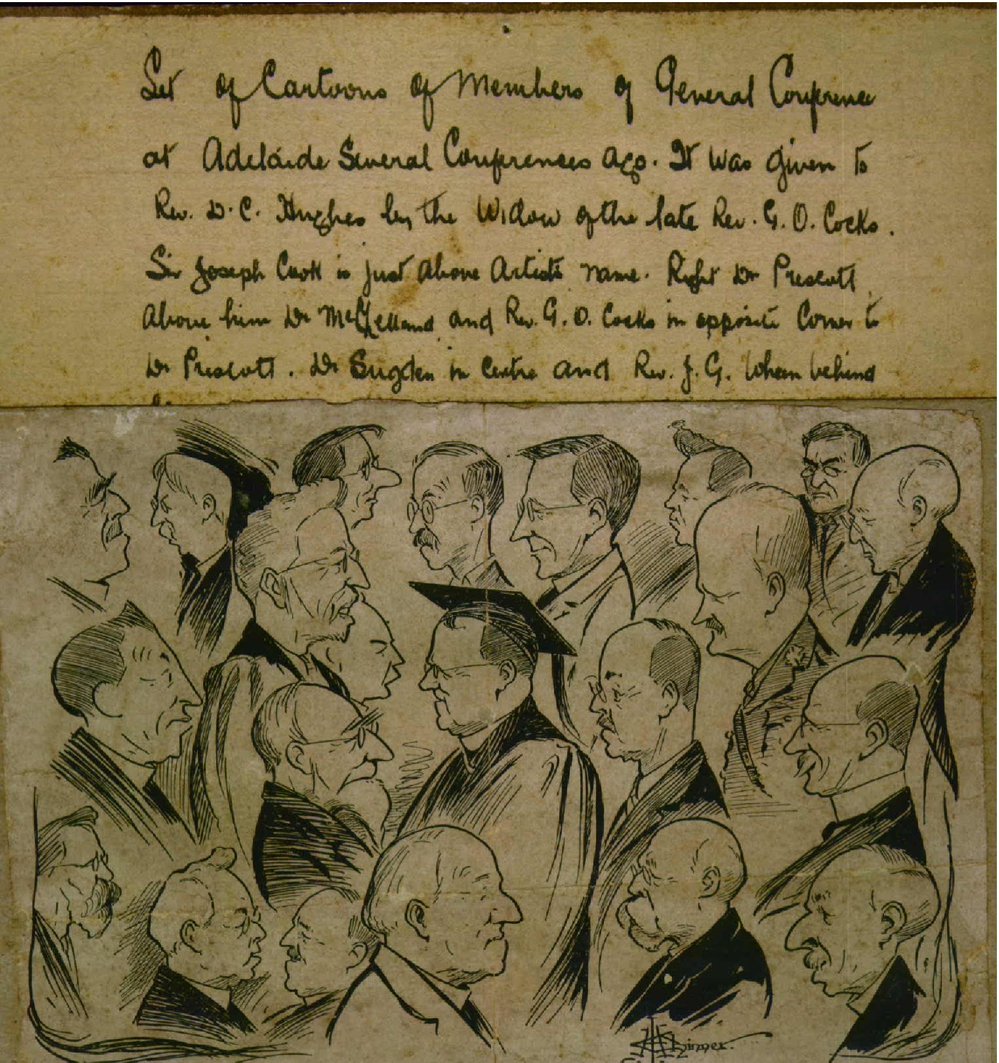 Set of Cartoons of Members of General Conference
at Adelaide Several Conferences ago. It was given to
Rev. D. C. Hughes by the Widow of the late Rev. G. O. Cocks.
Sir Joseph Cook is just above Artists name. Right Dr Prescott
Above him Dr McClelland and Rev. G. O. Cocks in opposite Corner to
Dr Prescott. Dr Sugden in Centre and Rev. J. G. Wheen behind